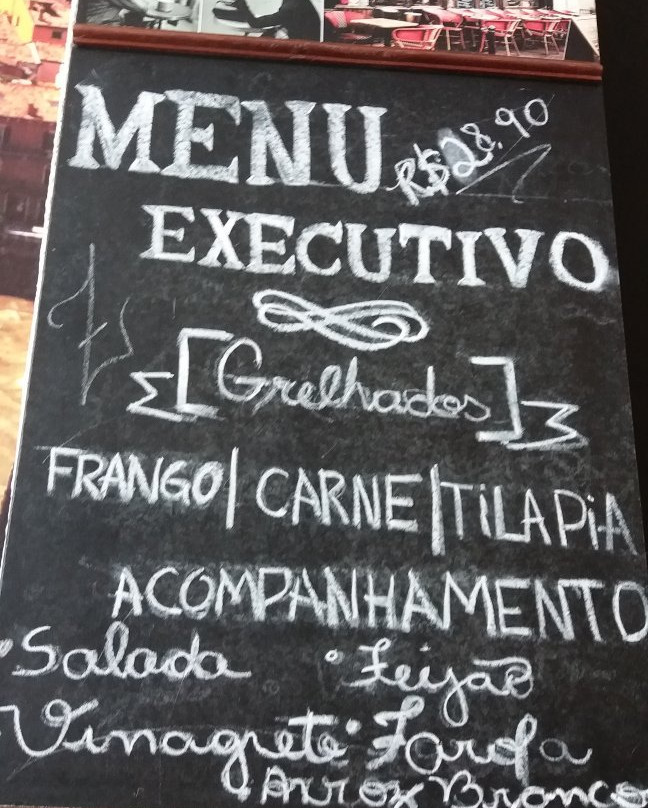 MENU R$28.90
EXECUTIVO
[Grelhados]
FRANGO | CARNE | TiLAPiA
ACOMPANHAMENTO
•Salada •Feijão
Vinagrete •Farofa
•Arroz Branco